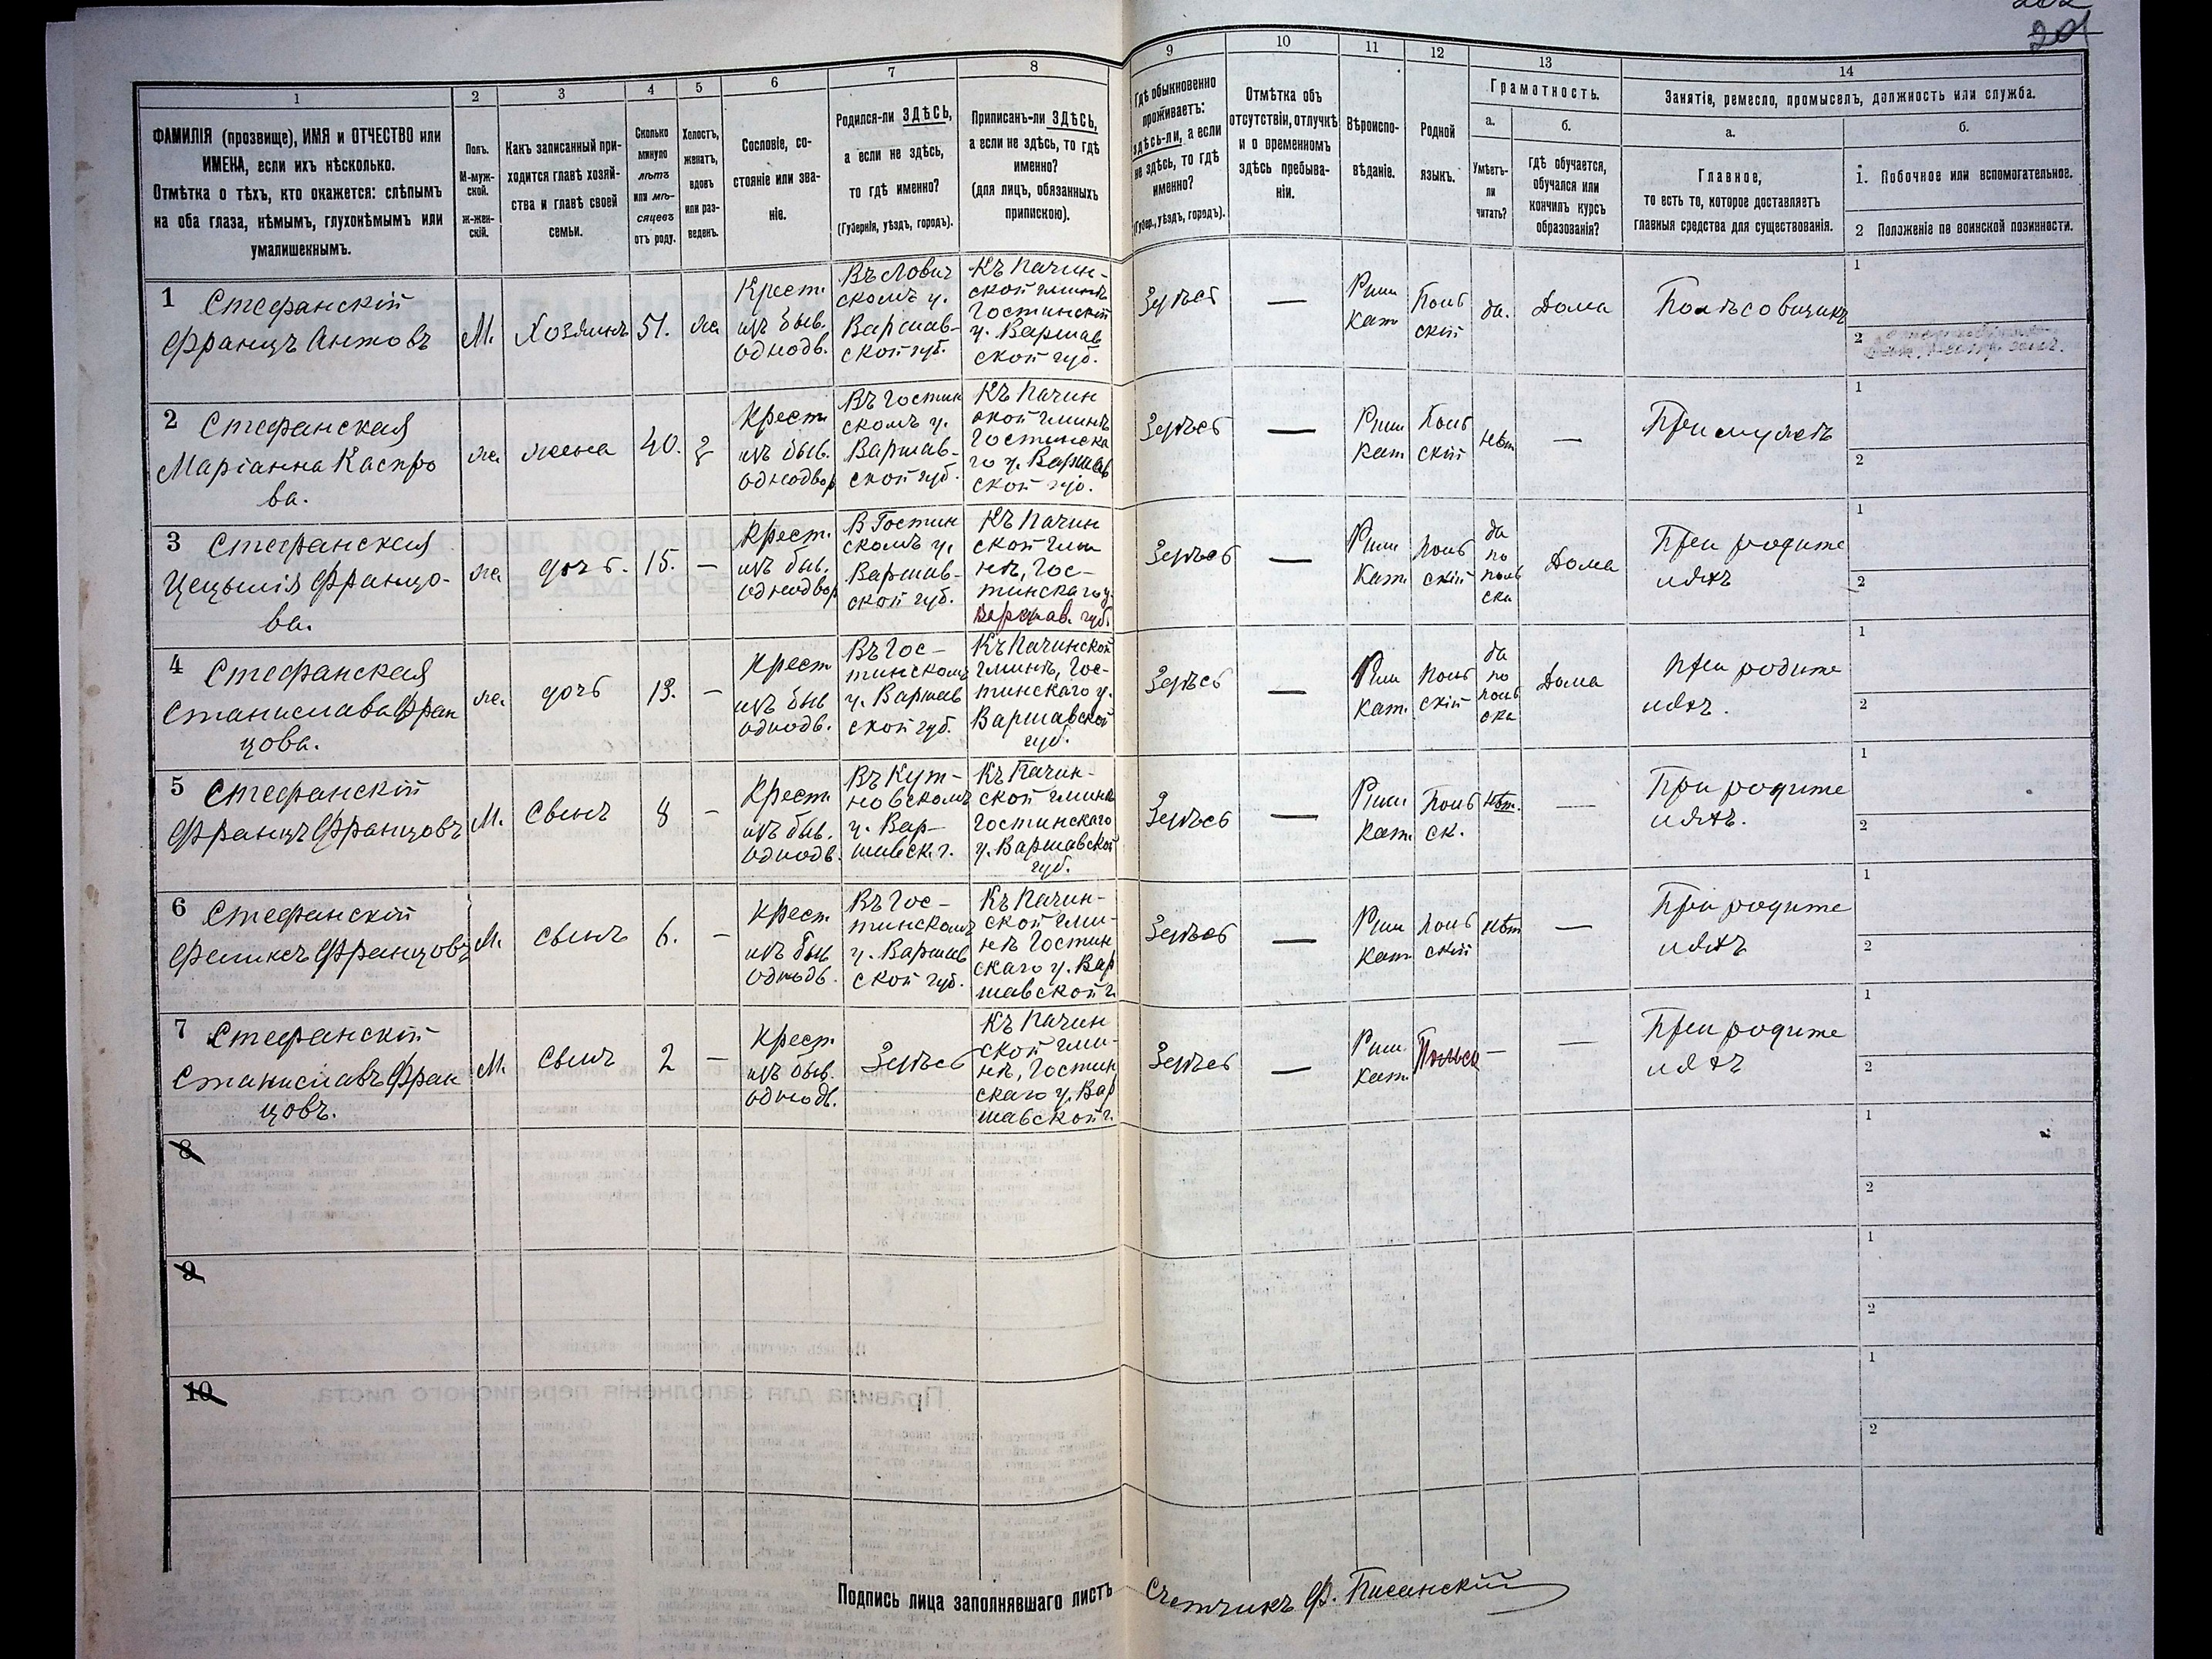 1
2
3
4
5
6
7
8
9
10
11
12
13
14
ФАМИЛІЯ (прозвище), ИМЯ и ОТЧЕСТВО или
ИМЕНА, если ихъ нѣсколько.
Отмѣтка о тѣхъ, кто окажется: слѣпымъ
на оба глаза, нѣмымъ, глухонѣмымъ или
умалишеннымъ.
Полъ.
М-муж-
ской.
ж-жен-
скій.
Какъ записанный при-
ходится главѣ хозяй-
ства и главѣ своей
семьи.
Сколько
минуло
лѣтъ
или мѣ-
сяцевъ
отъ роду.
Холостъ,
женатъ,
вдовъ
или раз-
веденъ.
Сословіе, со-
стояніе или зва-
ніе.
Родился-ли ЗДѢСЬ,
а если не здѣсь,
то гдѣ именно?
(Губернія, уѣздъ, городъ).
Приписанъ-ли ЗДѢСЬ,
а если не здѣсь, то гдѣ
именно?
(для лицъ, обязанныхъ
припискою).
Гдѣ обыкновенно
проживаетъ:
здѣсь-ли, а если
не здѣсь, то гдѣ
именно?
(Губер., уѣздъ, городъ).
Отмѣтка объ
отсутствіи, отлучкѣ
и о временномъ
здѣсь пребыва-
ніи.
Вѣроиспо-
вѣданіе.
Родной
языкъ.
Грамотность.
а.
Умѣетъ-
ли
читать?
б.
гдѣ обучается,
обучался или
кончилъ курсъ
образованія?
Занятіе, ремесло, промыселъ, должность или служба.
а.
Главное,
то есть то, которое доставляетъ
главныя средства для существованія.
б.
1. Побочное или вспомогательное.
2 Положеніе по воинской повинности.
1 Стефанскій
Францъ Антовъ
М.
Хозяинъ
51.
жа
Крест.
изъ быв.
однодв.
Въ Лович
скомъ у.
Варшав-
ской губ.
Къ Пачин-
ской гминѣ
Гостинскій
у. Варшав
ской губ.
Здѣсь
—
Рим
Кат
Поль
скій
да.
Дома
Полѣсовщикъ
1
2
2 Стефанская
Маріанна Каспро
ва.
же.
жена
40.
з
Крест
изъ быв.
однодвор
Въ Гостин
скомъ у.
Варшав-
ской губ.
Къ Пачин
ской гминѣ
Гостинска
го у. Варшав
ской губ.
Здѣсь
—
Рим
Кат
Поль
скій
нѣт
—
При мужѣ
1
2
3 Стефанская
Цецылія Францо-
ва.
же.
дочь.
15.
—
Крест.
изъ быв.
однодвор
В Гостин
скомъ у.
Варшав-
ской губ.
Къ Пачин
ской гми
нѣ, Гос-
тинскаго у.
Варшав. губ.
Здѣсь
—
Рим
Кат
Поль
скій
да
по
поль
ски
Дома
При родите
ляхъ
1
2
4 Стефанская
Станислава Фран
цова.
же.
дочь
13.
—
Крест
изъ быв
однодв.
Въ Гос-
тинскомъ
у. Варшав
ской губ.
Къ Пачинской
гминѣ, Гос-
тинскаго у.
Варшавской
губ.
Здѣсь
—
Рим
Кат.
Поль
скій
да
по
поль
ски
Дома
При родите
ляхъ.
1
2
5 Стефанскій
Францъ Францовъ
М.
Сынъ
8
—
Крест
изъ быв.
однодв.
Въ Кут-
новскомъ
у. Вар-
шавск. г.
Къ Пачин-
ской гминѣ
Гостинскаго
у. Варшавской
губ.
Здѣсь
—
Рим.
Кат.
Поль
ск.
нѣт.
—
При родите
ляхъ.
1
2
6 Стефанскій
Феликсъ Францовъ
М.
сынъ
6.
—
Крест
изъ быв
однодв.
Въ Гос-
тинскомъ
у. Варшав
ской губ.
Къ Пачин-
ской гми-
нѣ Гостин
скаго у. Вар
шавской г.
Здѣсь
—
Рим
Кат
Поль
скій
нѣт
—
При родите
ляхъ
1
2
7 Стефанскій
Станиславъ Фран
цовъ.
М.
Сынъ
2
—
Крест
изъ быв.
однодв.
Здѣсь
Къ Пачин
ской гми-
нѣ, Гостин
скаго у. Вар
шавской г.
Здѣсь
—
Рим.
Кат.
Польск
—
—
При родите
ляхъ
1
2
8
1
2
9
1
2
10
1
2
Подпись лица заполнявшаго листъ Счетчикъ Ф. Писанскій